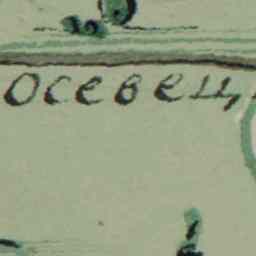 осевец